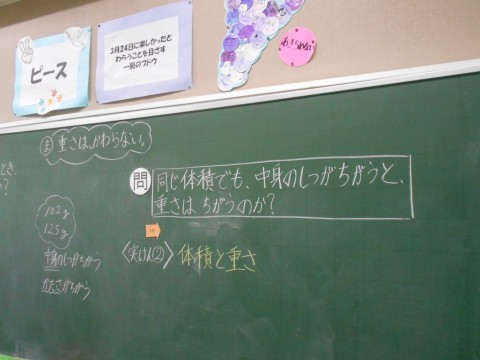 ピース
3月24日に楽しかったと
わらうことを目ざす
一房のブドウ
あきらめない
ま 重さはかわらない。
問 同じ体積でも、中身のしつがちがうと、
重さは ちがうのか?
102g
125g
中身のしつがちがう
かたさがちがう
〈実けん②〉体積と重さ